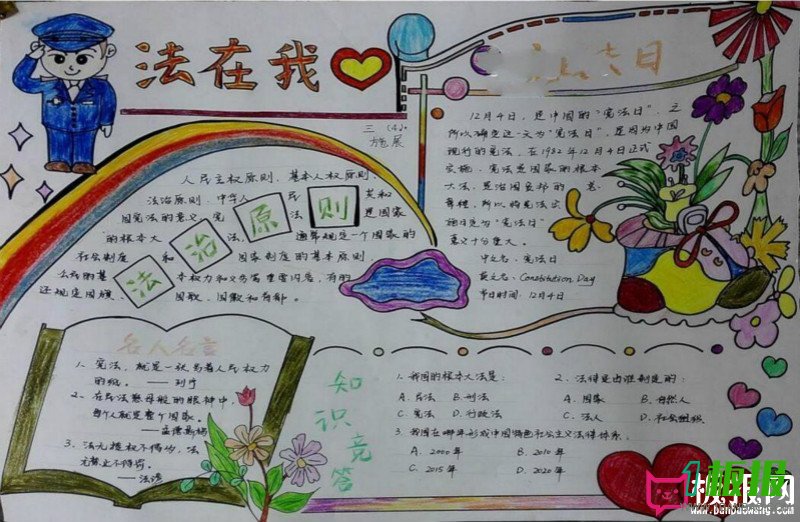 法在我
三 (4)
施展
日
12月4日,是中国的“宪法日”,之
所以确定这一天为“宪法日”,是因为中国
现行的宪法,在1982年12月4日正式
实施。宪法是国家的根本
大法,是治国安邦的总
章程,所以将宪法实
施日定为“宪法日”
意义十分重大。
中文名:宪法日
英文名:Constitution Day
节日时间:12月4日
人民主权原则、基本人权原则、
法治原则、中华人民共和
国宪法的意义 宪法是国家
的根本大法,通常规定一个国家的
社会制度和国家制度的基本原则
本权力和义务等重要内容,有的
还规定国旗、国歌、国徽和首都。
法治原则
名人名言
1、宪法,就是一张写着人民权力
的纸。——列宁
2、在民法慈母般的眼神中,
每个人就是整个国家。
——孟德斯鸠
3、法无授权不得行,法
无禁止不得罚。
——法谚
知识竞答
1、我国的根本大法是:
A.民法 B.刑法
C.宪法 D.行政法
2、法律是由谁制定的:
A.国家 B.自然人
C.法人 D.社会组织
3、我国在哪年形成中国特色社会主义法律体系。
A.2000年 B.2010年
C.2015年 D.2020年
板报网
www.banbaowang.com